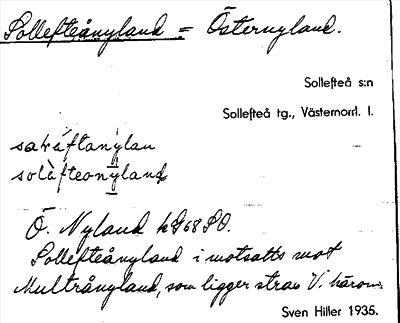 Sollefteånyland = Östernyland.
Sollefteå s:n
Sollefteå tg., Västernorrl. l.
Ö. Nyland kG68SO.
Sollefteånyland i motsatts mot
Multrånyland, som ligger strax V. härom.
Sven Hiller 1935.